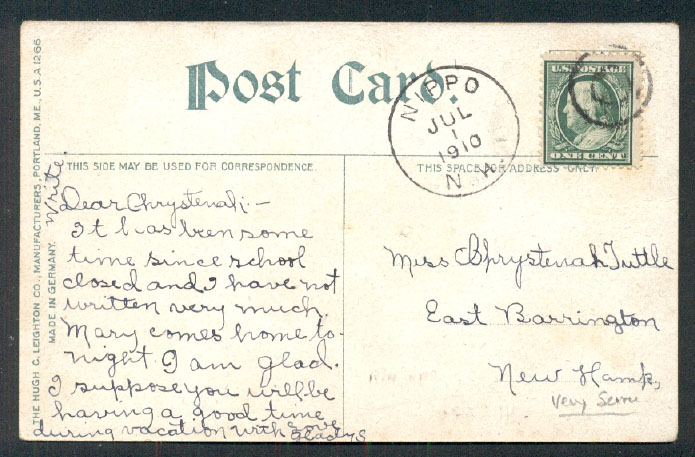 Post Card.
NIPPO
JUL
1
1910
N. H.
U.S. POSTAGE
ONE CENT
THIS SIDE MAY BE USED FOR CORRESPONDENCE.
THIS SPACE FOR ADDRESS ONLY.
THE HUGH C. LEIGHTON CO., MANUFACTURERS, PORTLAND, ME., U.S.A 1266
MADE IN GERMANY.
Write.
Dear Chrystenah:—
It has been some
time since school
closed and I have not
written very much.
Mary comes home to-
night I am glad.
I suppose you will be
having a good time
during vacation with Love
Gladys
Miss Chrystenah Tuttle
East Barrington
New Hamp,
Very Scarce